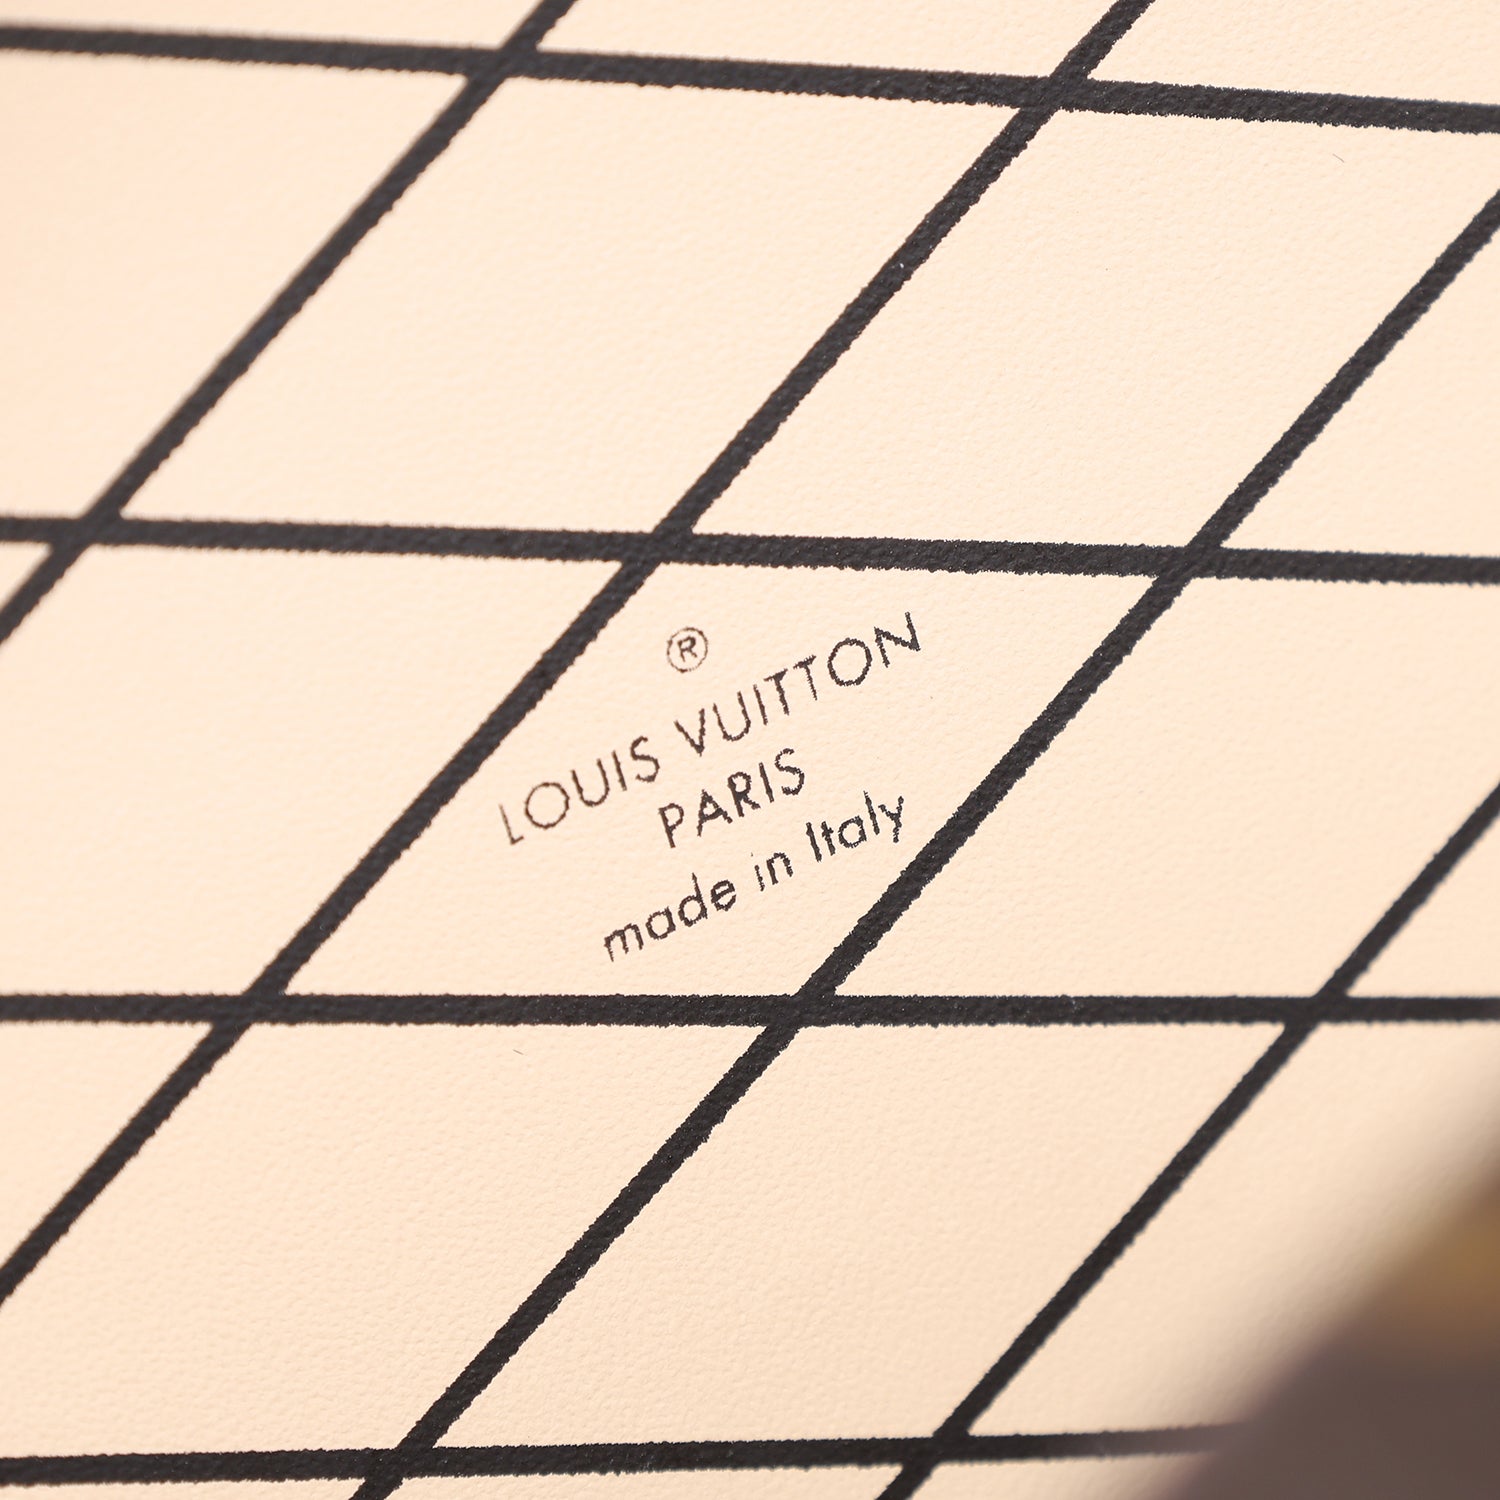 ®
LOUIS VUITTON
PARIS
made in Italy